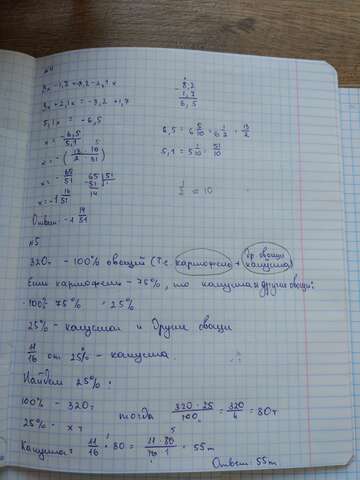 №4
3x - 1,7 = -8,2 - 2,1x
3x + 2,1x = -8,2 + 1,7
- 8,2
1,7
6,5
5,1x = -6,5
x = - 6,5/5,1
6,5 = 6 5/10 = 6 1/2 = 13/2
x = - (13/2 · 10/51)
5,1 = 5 1/10 = 51/10
x = - 65/51
65 | 51
51 | 1
14
x = -1 14/51
Ответ: -1 14/51
№5
320т - 100% овощей (Т.е картофель + др. овощи капуста)
Если картофель - 75%, то капуста и другие овощи:
100% 75% = 25%
25% - капуста и другие овощи
11/16 от 25% - капуста.
Найдем 25%:
100% - 320т
25% - x т
тогда 320 · 25/100 = 320/4 = 80т
Капуста = 11/16 · 80 = 11 · 80/16 · 1 = 55т
Ответ: 55т